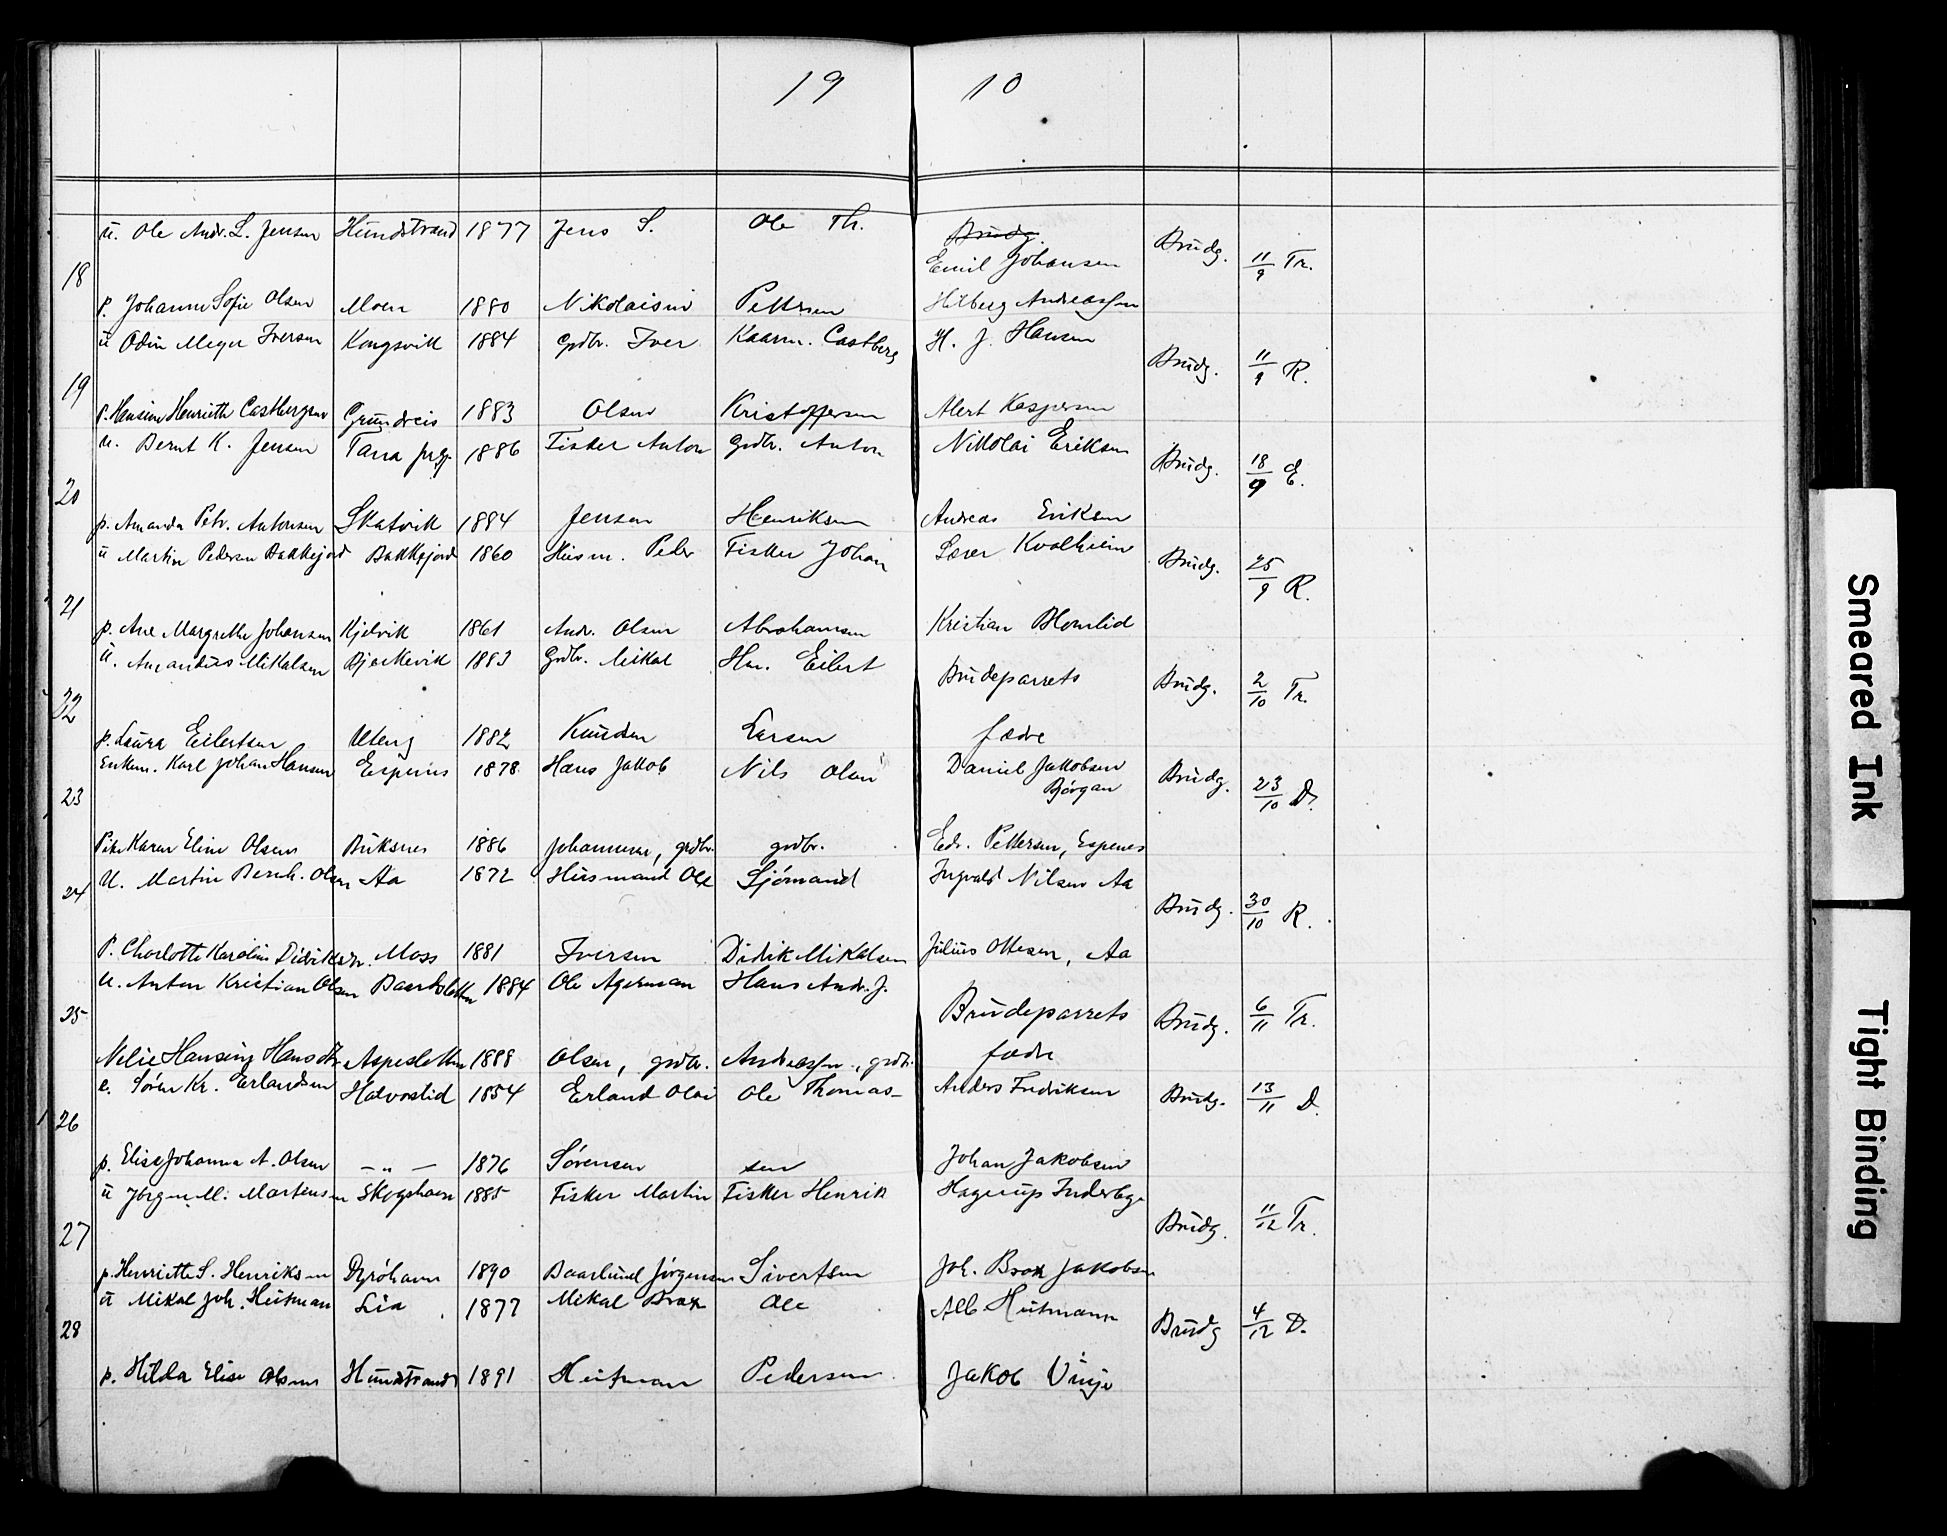 19 10
u. Ole Andr. L. Jensen Hundstrand 1877 Jens S. Ole Th. Brudg. Brudg. 11/9 Tr.
Emil Johansen
18
p. Johanna Sofie Olsen Moen 1880 Nikolaisen Pettersen Hilberg Andreassen
u Odin Meyer Iversen Kongsvik 1884 Grdbr. Iver Kaarm. Castberg H. J. Hansen
19 Brudg. 11/9 R.
p. Hansine Henriette Castbergsen Grundreis 1883 Olsen Kristoffersen Alert Kaspersen
u. Bernt K. Jensen Tana prgj. 1886 Fisker Anton grdbr. Anton Nikolai Eriksen
20 Brudg. 18/9 E.
p. Amanda Petr. Antonsen Skatvik 1884 Jensen Henriksen Andreas Eriksen
u Martin Pedersen Bakkejord Bakkejord 1860 Husm. Peder Fisker Johan Lærer Kvalheim
21 Brudg. 25/9 R.
p. Ane Margrethe Johansen Kjelvik 1861 Andr. Olsen Abrahamsen Kristian Blomlid
u. Amandus Mikalsen Bjerkevik 1883 Grdbr. Mikal Hm. Eilert
22 Brudeparrets Brudg. 2/10 Tr.
p. Laura Eilertsen Uteng 1882 Knudsen Larsen fædre
Enkem. Karl Johan Hansen Espenes 1878 Hans Jakob Nils Olsen Daniel Jakobsen
23 Bjørgan Brudg. 23/10 D.
Pike Karen Eline Olsen Buksnes 1886 Johannesen, grdbr. grdbr. Edv. Pettersen, Espenes
24 U. Martin Bernh. Olsen Aa 1872 Husmand Ole Sjømand Ingvald Nilsen Aa
Brudg. 30/10 R.
P. Charlotte Karoline Didriksdr. Moss 1881 Iversen Didrik Mikalsen Julius Ottesen, Aa
u. Anton Kristian Olsen Baardsletten 1884 Ole Agerman Hans Andr. J.
25 Brudeparrets Brudg. 6/11 Tr.
Nelie Hansing Hansdtr. Aspesletten 1888 Olsen, grdbr. Andreassen, grdbr. fædre
e. Søren Kr. Erlandsen Halvorslid 1854 Erland Olai Ole Thomas- Anders Fredriksen Brudg. 13/11 D.
26
p. Elise Johanna A. Olsen — " — 1876 Sørensen sen Johan Jakobsen
u Jørgen M. Martensen Skogshavn 1885 Fisker Martin Fisker Henrik Hagerup Inderberge
27 Brudg. 11/12 Tr.
p. Henriette S. Henriksen Dyröhavn 1890 Baarlund Jørgensen Sivertsen Joh. Brox Jakobsen
u Mikal Joh. Heitman Lia 1877 Mikal Brox Ole Alb Heitmann
28 Brudg 4/12 D.
p. Hilda Elise Olsen Hundstrand 1891 Heitman Pedersen Jakob Vinje
Smeared Ink
Tight Binding